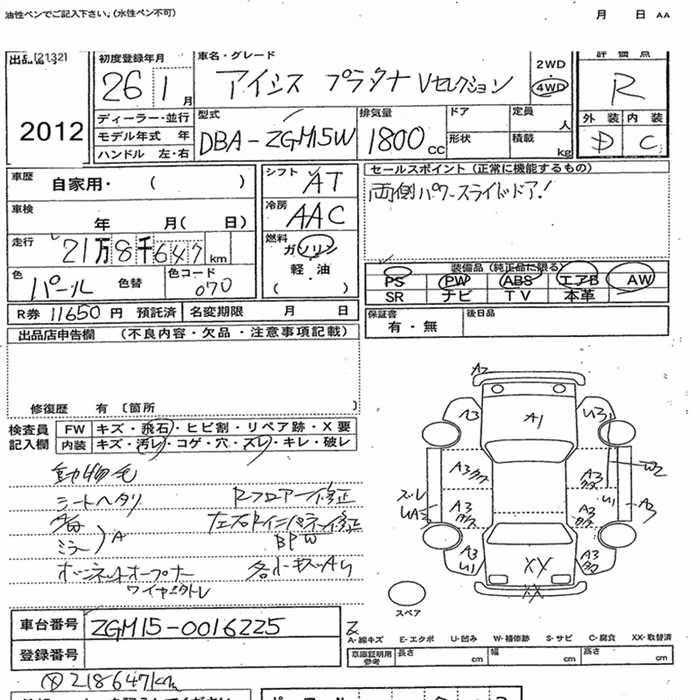 油性ペンでご記入下さい。(水性ペン不可) 月 日 AA
出品(2132) 初度登録年月 車名・グレード 2WD 評価点
26 1 月 アイシス プラタナ Vセレクション 4WD R
2012 ディーラー・並行 型式 排気量 ドア 定員 人 外装 内装
モデル年式 年 DBA-ZGM15W 1800cc 形状 積載 kg D C
ハンドル 左・右
車歴 自家用・( ) シフト AT セールスポイント (正常に機能するもの)
車検 年 月( 日) 冷房 AAC 両側パワースライドドア!
走行 21万8千647km 燃料 ガソリン 軽・油 ・( )
装備品 (純正品に限る)
色 パール 色替 色コード 070 PS PW ABS エアB AW
SR ナビ TV 本革
R券 11650円 預託済 名変期限 月 日 保証書 有・無 後日品
出品店申告欄 (不良内容・欠品・注意事項記載)
修復歴 有 〔箇所
検査員 FW キズ・飛石・ヒビ割・リペア跡・X要
記入欄 内装 キズ・汚レ・コゲ・穴・スレ・キレ・破レ
動物毛
シートヘタリ Rフロアー修正
ミラー A 左右Rインパネ修正
BPW
ボンネットオープナー 各小キズAU
ワイヤー
A2
A3 A1 U3
A3 A3 W2
スレ A3 A3 U1 A3
UA3
A3 U1 XX A3 U1
XX
スペア
車台番号 ZGM15-0016225
A-線キズ E-エクボ U-凹み W-補修跡 S-サビ C-腐食 XX-取替済
登録番号 車庫証明用参考 長さ cm 幅 cm 高さ cm
218647km